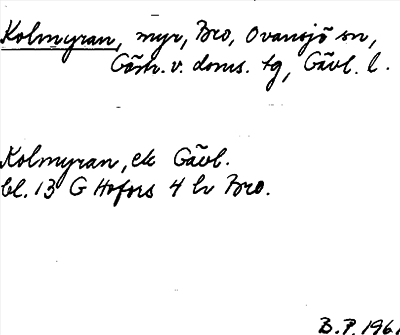 Kolmyran, myr, Bro, Ovansjö sn,
Gästr. v. doms. tg, Gävl. l.
Kolmyran, ek Gävl.
bl. 13 G Hofors 4 hv Bro.
B.P. 1961